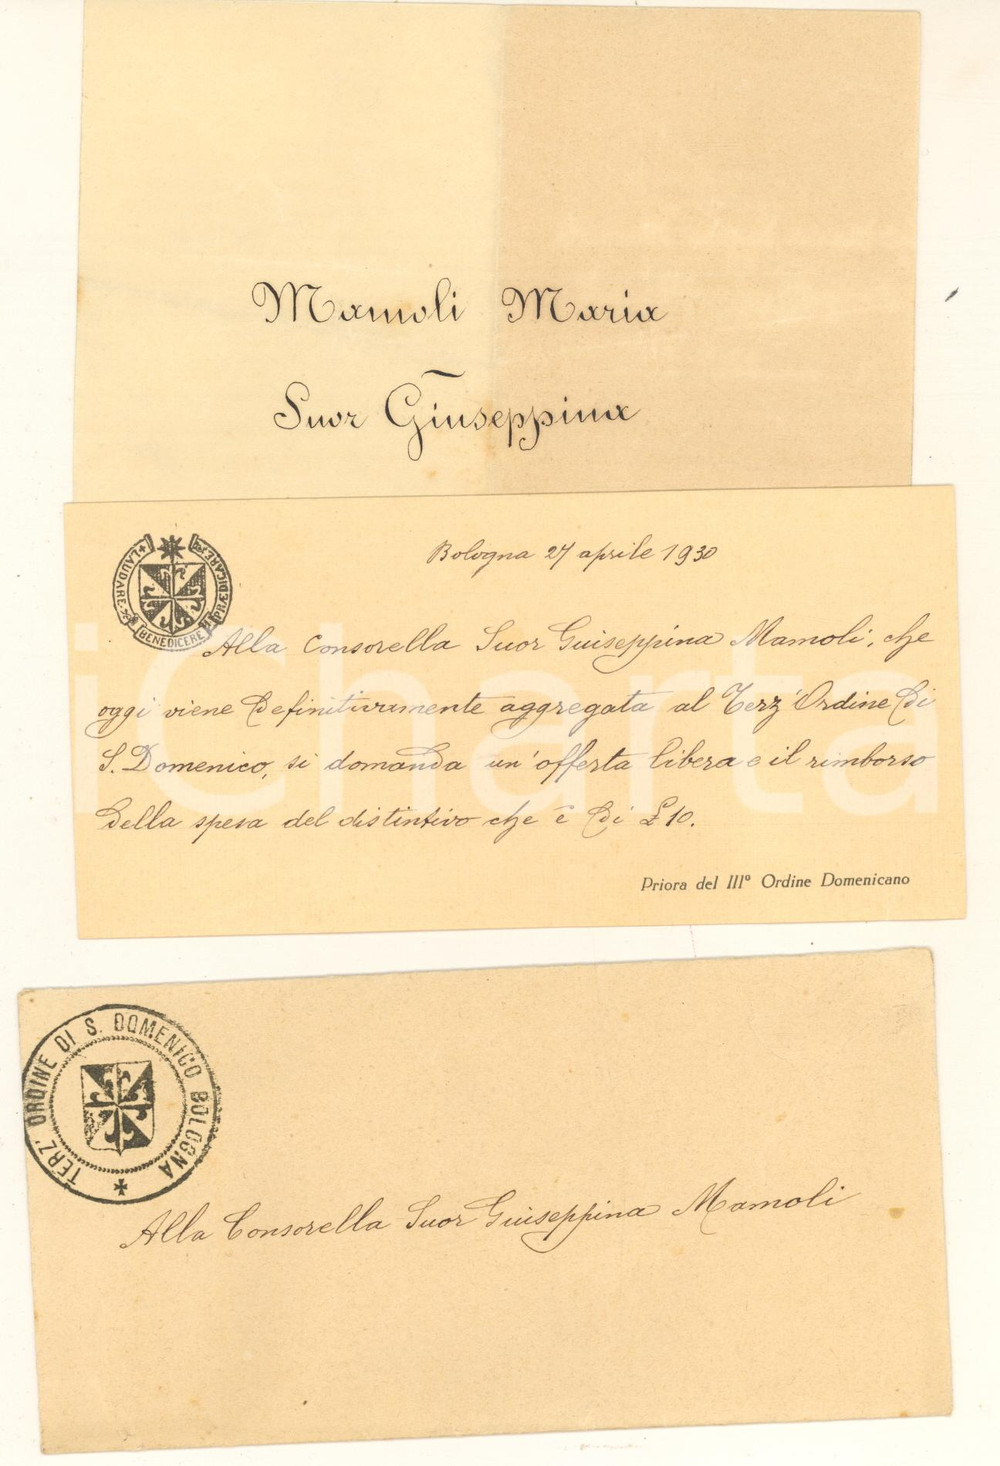 Mamoli Maria
Suor Giuseppina
LAUDARE
BENEDICERE
PRÆDICARE
Bologna 27 aprile 1930
Alla Consorella Suor Guiseppina Mamoli, che
oggi viene definitivamente aggregata al Terz'Ordine di
S. Domenico, si domanda un'offerta libera e il rimborso
della spesa del distintivo che è di £ 10.
Priora del IIIº Ordine Domenicano
iCharta
TERZ' ORDINE DI S. DOMENICO BOLOGNA
Alla Consorella Suor Guiseppina Mamoli